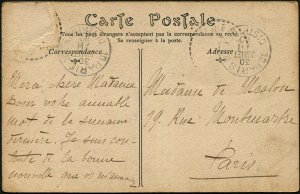 Carte Postale
Tous les pays étrangers n'acceptent pas la correspondance au recto.
Se renseigner à la poste.
Correspondance
Adresse
Merci chère Madame
pour votre aimable
mot de la semaine
dernière. Je suis con-
tente de la bonne
nouvelle que
Madame de Meslon
19 Rue Montmartre
Paris